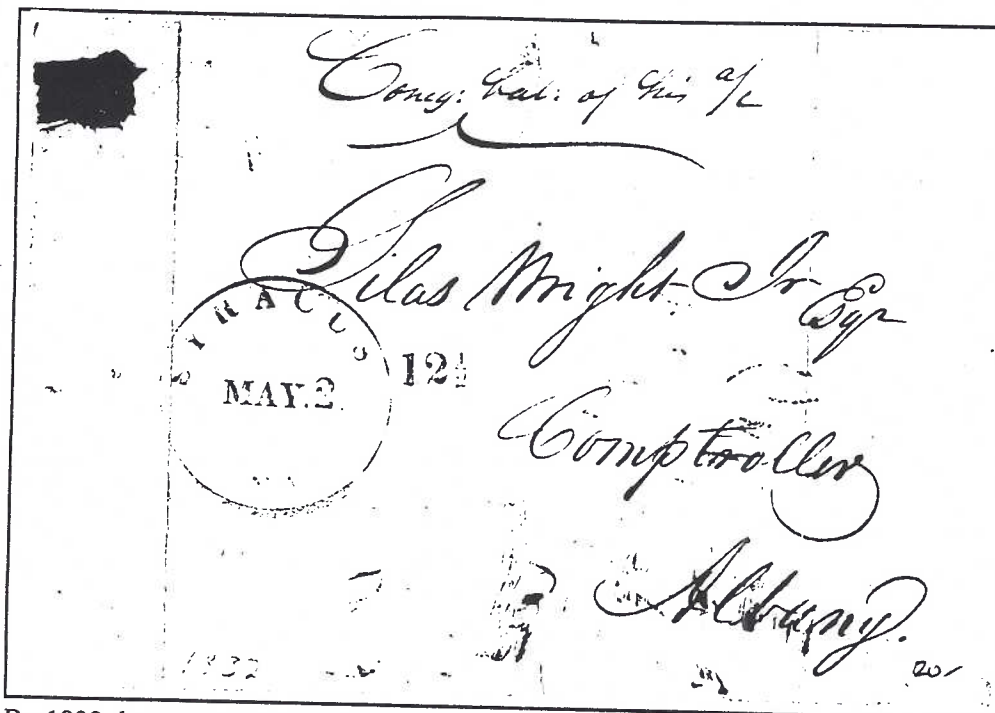 Comg: bal: of his a/c
Silas Wright Jr Esqr
SYRACUS
MAY.2
12½
Comptroller
Albany.
1832
20/